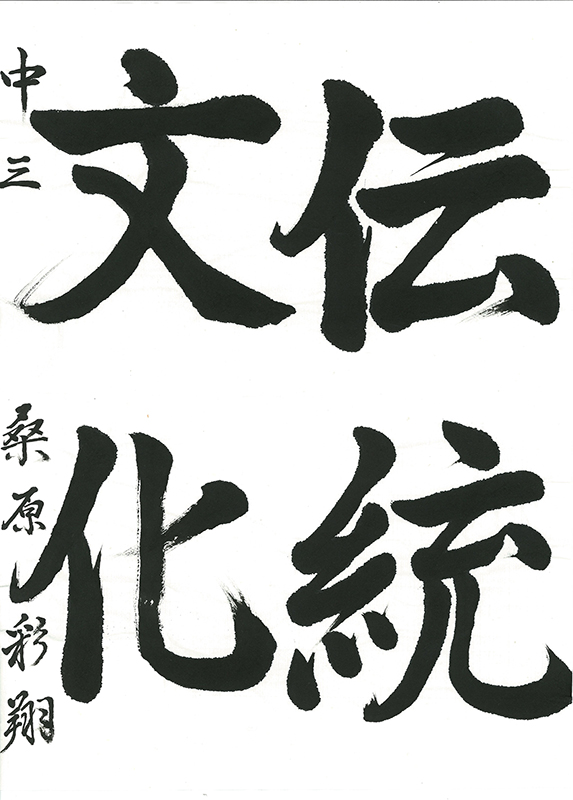 伝統
文化
中三 桑原彩翔